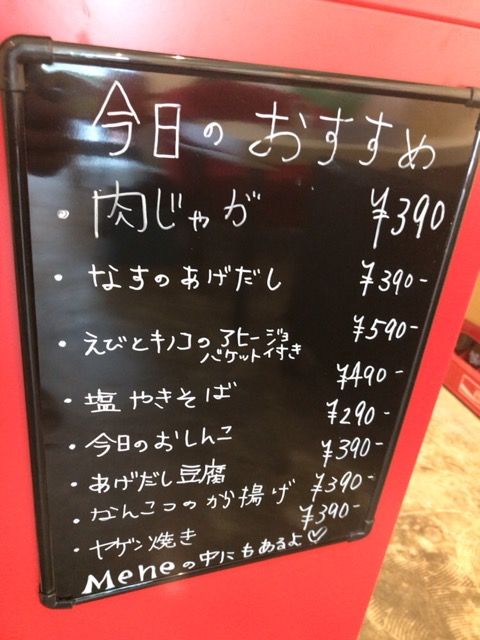 今日のおすすめ
・肉じゃが ¥390
・なすのあげだし ¥390-
・えびとキノコのアヒージョ ¥590-
バケット付き
・塩やきそば ¥490-
・今日のおしんこ ¥290-
・あげだし豆腐 ¥390-
・なんこつのから揚げ ¥390-
・ヤゲン焼き ¥390-
Meneの中にもあるよ♡